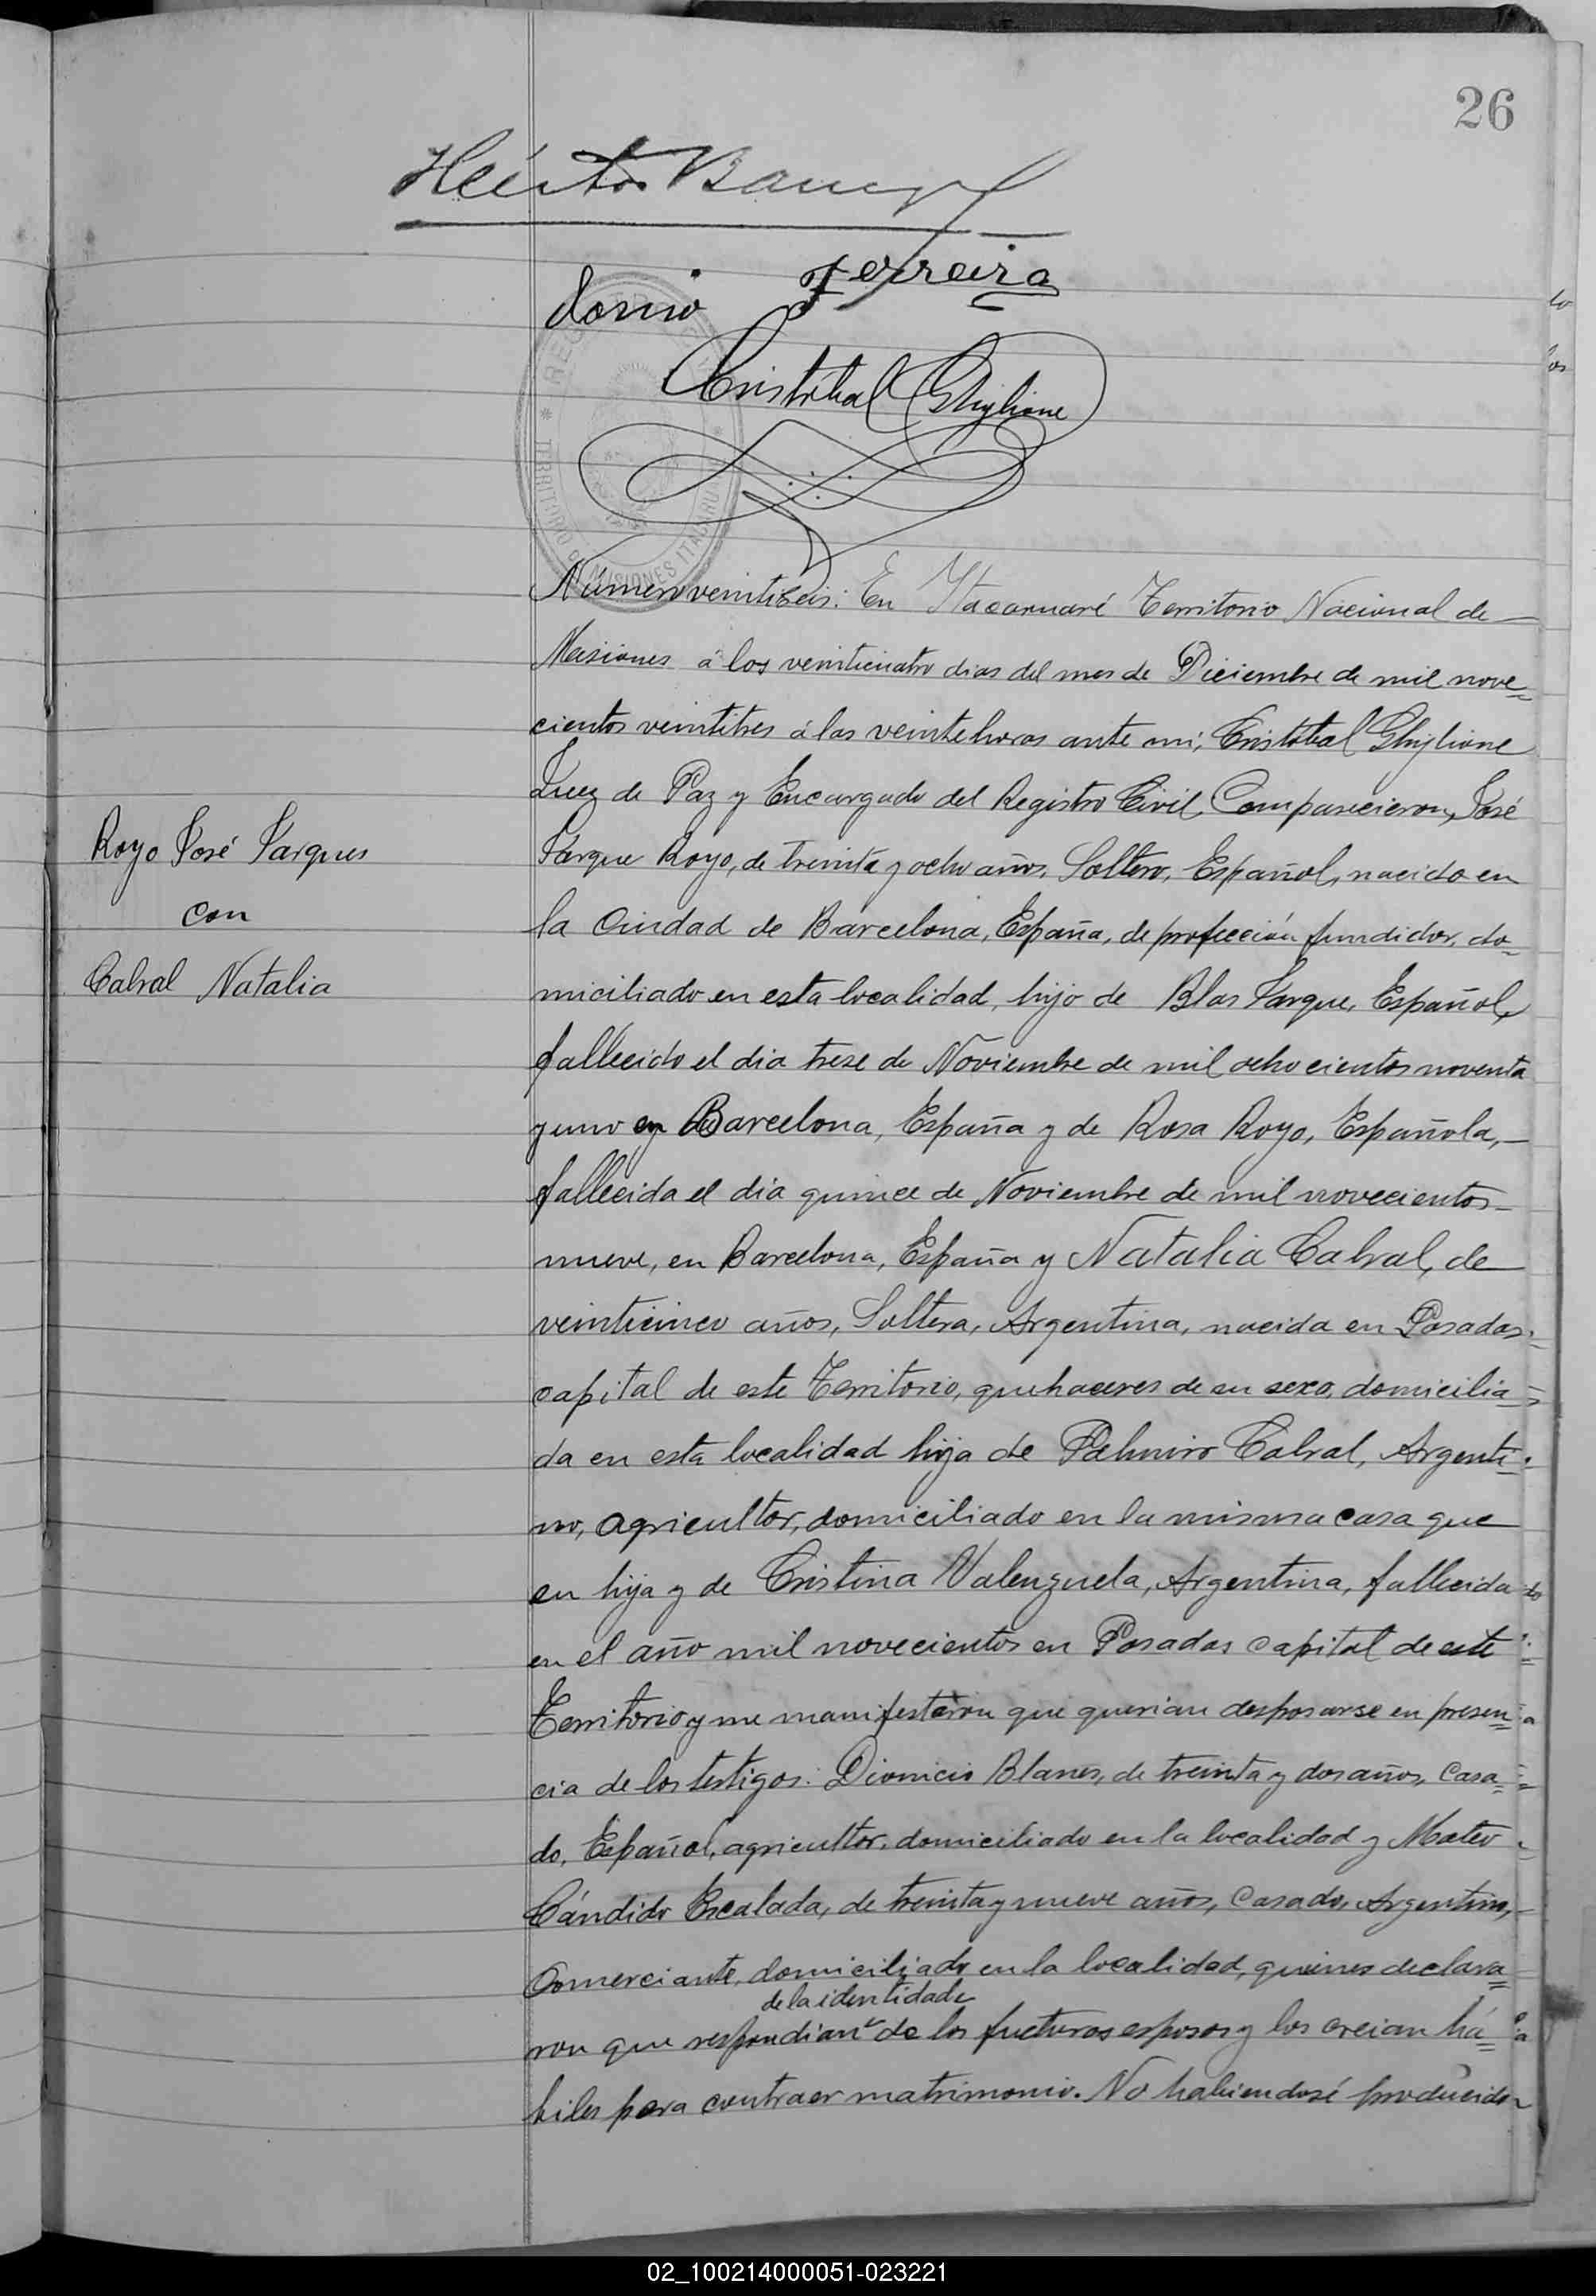 26
Héctor
Ferreira
Cristóbal Ghiglione
REGISTRO
TERRITORIO DE MISIONES ITACARUARÉ
Número veintiseis: En Itacaruaré Territorio Nacional de
Misiones á los veinticuatro dias del mes de Diciembre de mil nove=
cientos veintitres á las veinte horas ante mi, Cristóbal Ghiglione
Juez de Paz y Encargado del Registro Civil, Comparecieron, José
Jarque Royo, de treinta y ocho años, Soltero, Español, nacido en
la Ciudad de Barcelona, España, de profección fundidor, do=
miciliado en esta localidad, hijo de Blas Jarque, Español,
fallecido el dia trese de Noviembre de mil ochocientos noventa
y uno en Barcelona, España y de Rosa Royo, Española,
fallecida el dia quince de Noviembre de mil novecientos
nueve, en Barcelona, España y Natalia Cabral, de
veinticinco años, Soltera, Argentina, nacida en Posadas
capital de este Territorio, quehaceres de su sexo, domicilia=
da en esta localidad hija de Palmiro Cabral, Argenti=
no, agricultor, domiciliado en la misma casa que
su hija y de Cristina Valenzuela, Argentina, fallecida
en el año mil novecientos en Posadas capital de este
Territorio y me manifestaron que querian desposarse en presen=
cia de los testigos: Dionicio Blanes, de treinta y dos años, Casa=
do, Español, agricultor, domiciliado en la localidad y Mateo
Cándido Escalada, de treinta y nueve años, Casado, Argentino,
Comerciante, domiciliado en la localidad, quienes declara=
de la identidad
ron que respondian de los fucturos esposos y los creian há=
biles para contraer matrimonio. No habiendosé producido
Royo José Jarques
con
Cabral Natalia
02_100214000051-023221